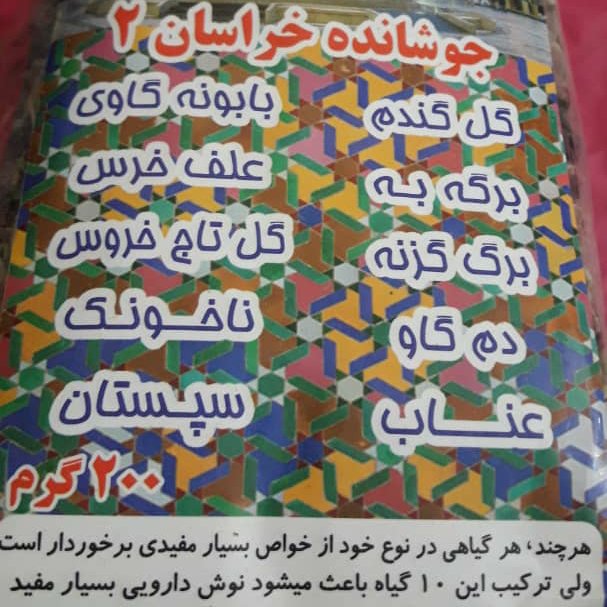 جوشانده خراسان ۲
گل گندم
بابونه گاوی
برگه به
علف خرس
برگ گزنه
گل تاج خروس
دم گاو
ناخونک
عناب
سپستان
۲۰۰ گرم
هرچند، هر گیاهی در نوع خود از خواص بسیار مفیدی برخوردار است
ولی ترکیب این ۱۰ گیاه باعث میشود نوش دارویی بسیار مفید